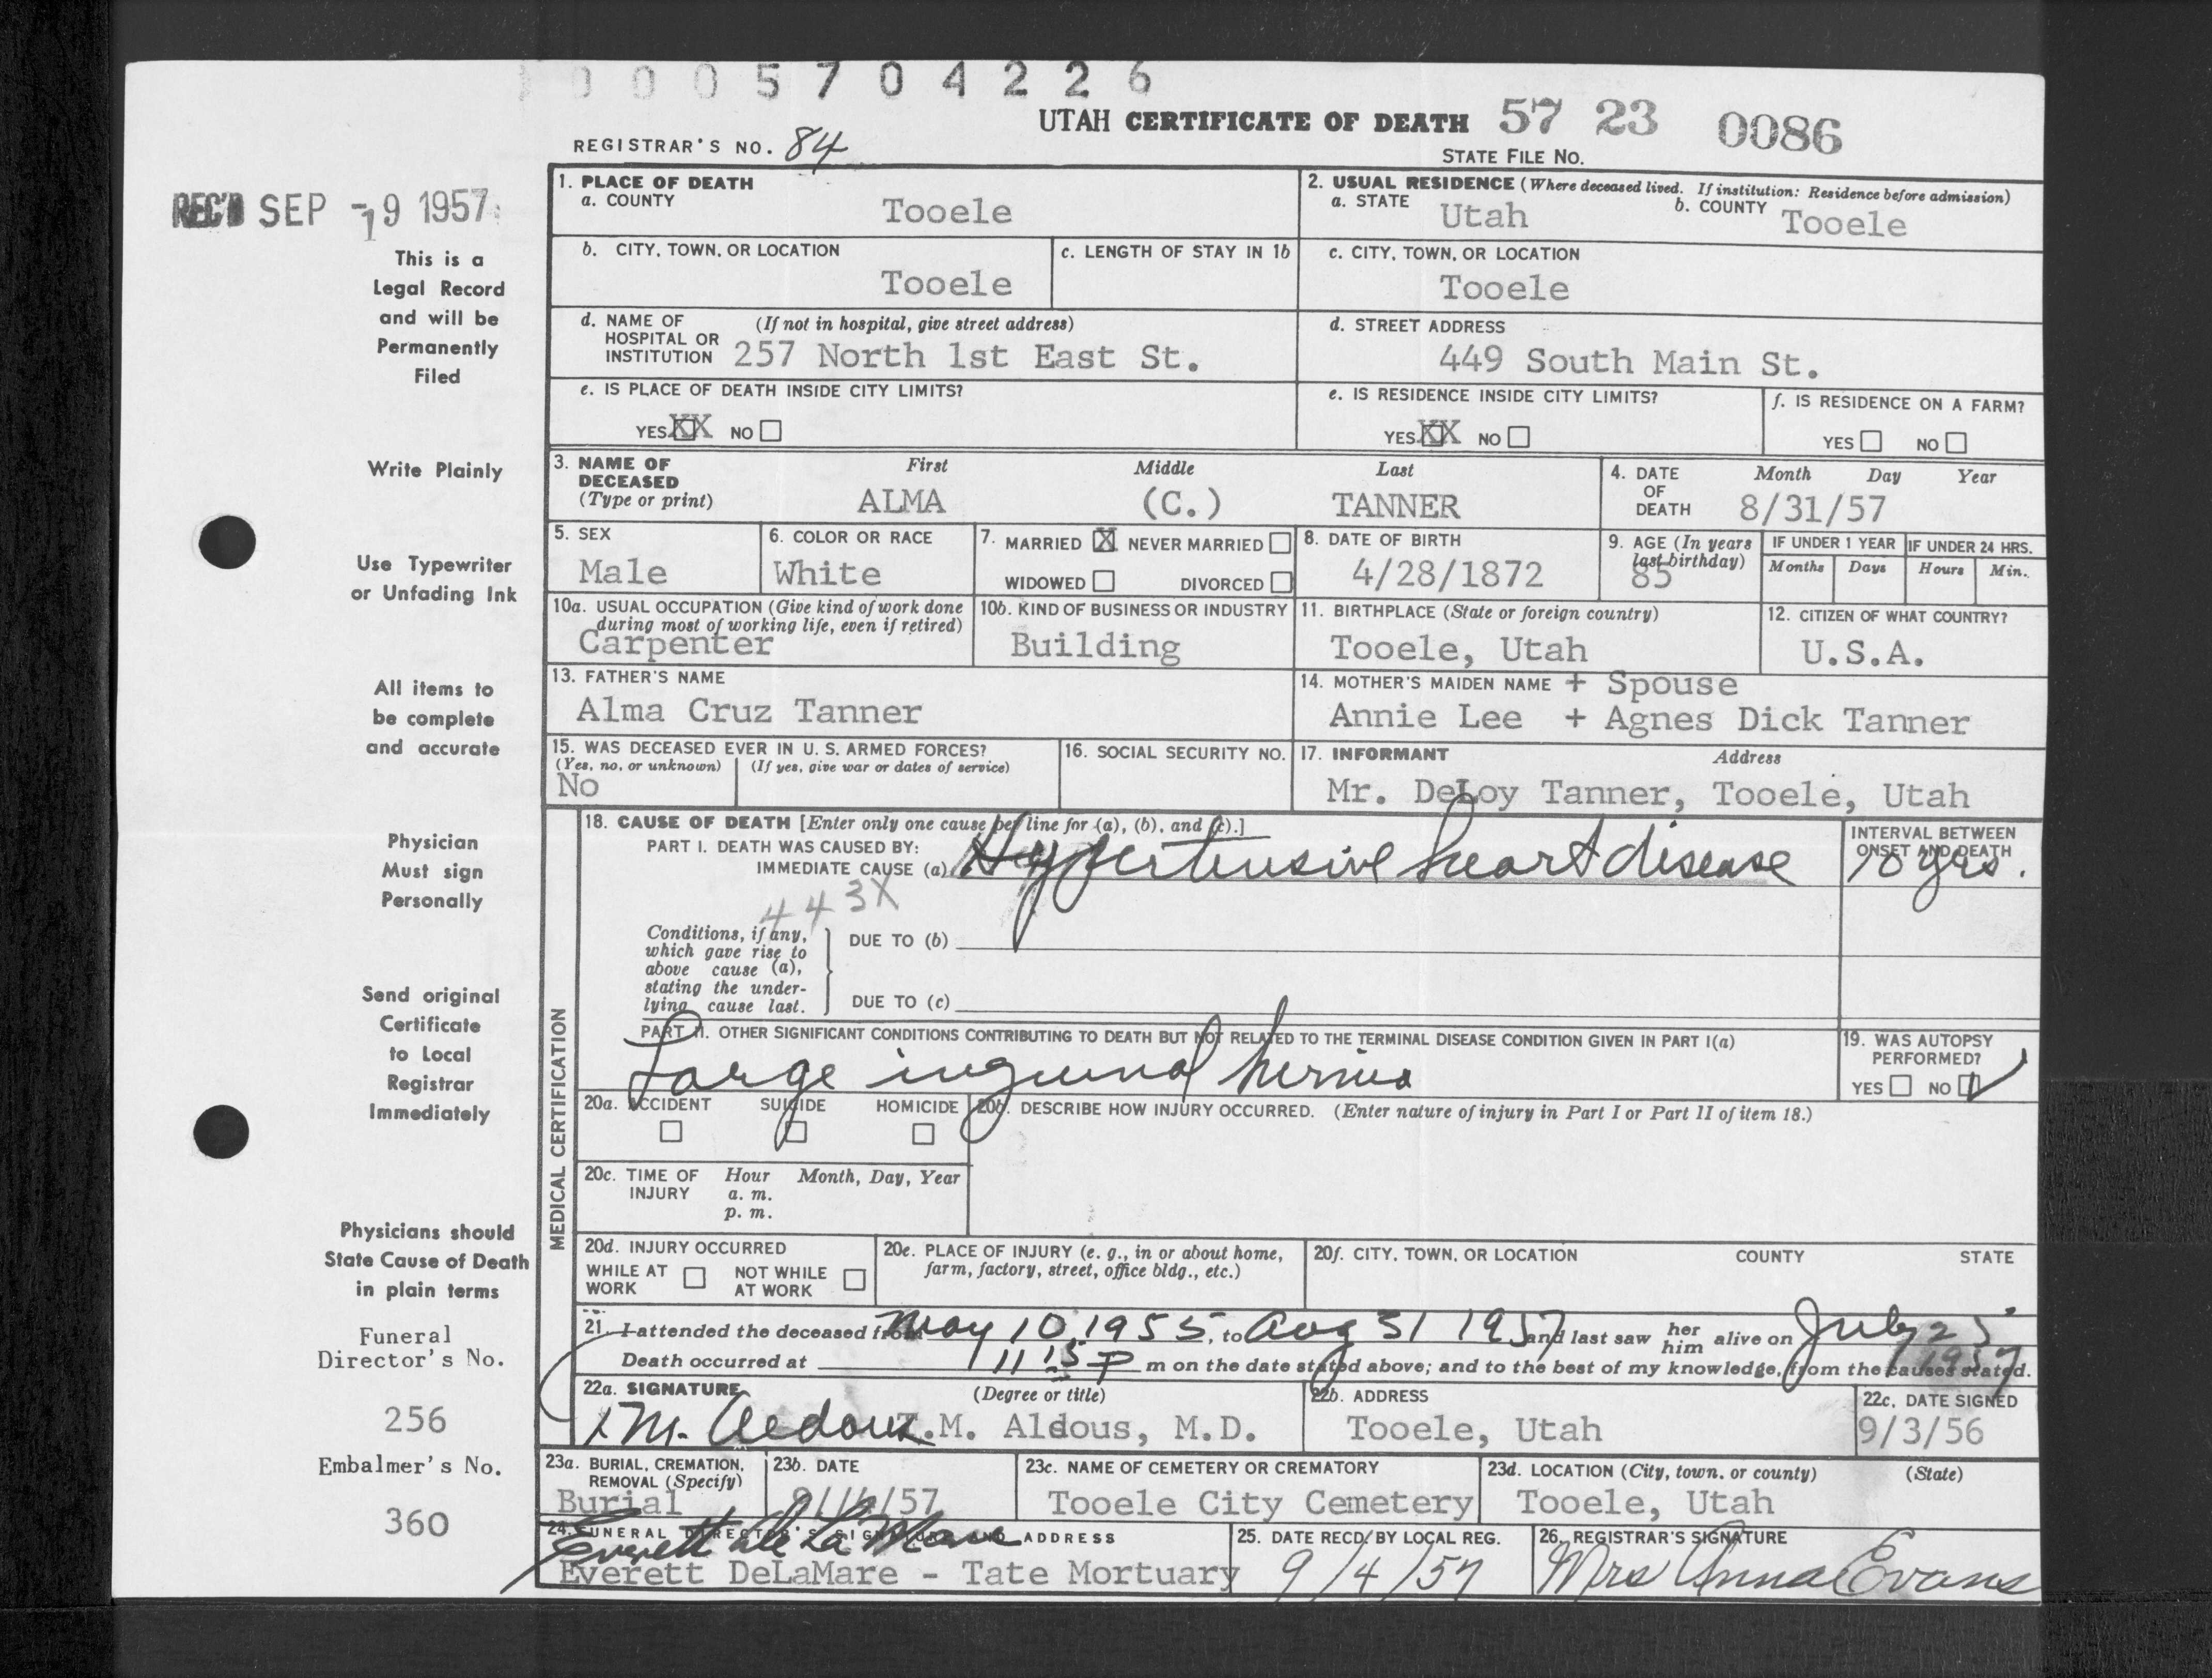 0005704226
UTAH CERTIFICATE OF DEATH 57 23 0086
REGISTRAR'S NO. 84
STATE FILE NO.
REC'D SEP -9 1957
This is a
Legal Record
and will be
Permanently
Filed
Write Plainly
Use Typewriter
or Unfading Ink
All items to
be complete
and accurate
Physician
Must sign
Personally
Send original
Certificate
to Local
Registrar
Immediately
Physicians should
State Cause of Death
in plain terms
Funeral
Director's No.
256
Embalmer's No.
360
1. PLACE OF DEATH
a. COUNTY
Tooele
2. USUAL RESIDENCE (Where deceased lived. If institution: Residence before admission)
a. STATE Utah b. COUNTY Tooele
b. CITY, TOWN, OR LOCATION
Tooele
c. LENGTH OF STAY IN 1b
c. CITY, TOWN, OR LOCATION
Tooele
d. NAME OF (If not in hospital, give street address)
HOSPITAL OR
INSTITUTION 257 North 1st East St.
d. STREET ADDRESS
449 South Main St.
e. IS PLACE OF DEATH INSIDE CITY LIMITS?
YES XX NO
e. IS RESIDENCE INSIDE CITY LIMITS?
YES XX NO
f. IS RESIDENCE ON A FARM?
YES NO
3. NAME OF DECEASED
(Type or print)
First Middle Last
ALMA (C.) TANNER
4. DATE OF DEATH
Month Day Year
8/31/57
5. SEX
Male
6. COLOR OR RACE
White
7. MARRIED X NEVER MARRIED
WIDOWED DIVORCED
8. DATE OF BIRTH
4/28/1872
9. AGE (In years last birthday)
85
IF UNDER 1 YEAR
Months Days
IF UNDER 24 HRS.
Hours Min.
10a. USUAL OCCUPATION (Give kind of work done
during most of working life, even if retired)
Carpenter
10b. KIND OF BUSINESS OR INDUSTRY
Building
11. BIRTHPLACE (State or foreign country)
Tooele, Utah
12. CITIZEN OF WHAT COUNTRY?
U.S.A.
13. FATHER'S NAME
Alma Cruz Tanner
14. MOTHER'S MAIDEN NAME + Spouse
Annie Lee + Agnes Dick Tanner
15. WAS DECEASED EVER IN U. S. ARMED FORCES?
(Yes, no, or unknown) (If yes, give war or dates of service)
No
16. SOCIAL SECURITY NO.
17. INFORMANT Address
Mr. DeLoy Tanner, Tooele, Utah
MEDICAL CERTIFICATION
18. CAUSE OF DEATH [Enter only one cause per line for (a), (b), and (c).]
PART I. DEATH WAS CAUSED BY:
IMMEDIATE CAUSE (a) Hypertensive heart disease
INTERVAL BETWEEN
ONSET AND DEATH
10 yrs.
443X
Conditions, if any,
which gave rise to
above cause (a),
stating the under-
lying cause last.
DUE TO (b)
DUE TO (c)
PART II. OTHER SIGNIFICANT CONDITIONS CONTRIBUTING TO DEATH BUT NOT RELATED TO THE TERMINAL DISEASE CONDITION GIVEN IN PART I(a)
Large inguinal hernia
19. WAS AUTOPSY
PERFORMED?
YES NO ✓
20a. ACCIDENT SUICIDE HOMICIDE
20b. DESCRIBE HOW INJURY OCCURRED. (Enter nature of injury in Part I or Part II of item 18.)
20c. TIME OF INJURY
Hour Month, Day, Year
a. m.
p. m.
20d. INJURY OCCURRED
WHILE AT WORK NOT WHILE AT WORK
20e. PLACE OF INJURY (e. g., in or about home,
farm, factory, street, office bldg., etc.)
20f. CITY, TOWN, OR LOCATION COUNTY STATE
21. I attended the deceased from May 10, 1955, to Aug 31 1957 and last saw her him alive on July 25 1957
Death occurred at 11 15 P m on the date stated above; and to the best of my knowledge, from the causes stated.
22a. SIGNATURE (Degree or title)
M. Aldous .M. Aldous, M.D.
22b. ADDRESS
Tooele, Utah
22c. DATE SIGNED
9/3/56
23a. BURIAL, CREMATION,
REMOVAL (Specify)
Burial
23b. DATE
23c. NAME OF CEMETERY OR CREMATORY
Tooele City Cemetery
23d. LOCATION (City, town, or county) (State)
Tooele, Utah
24. FUNERAL DIRECTOR'S SIGNATURE AND ADDRESS
Everett DeLaMare
Everett DeLaMare - Tate Mortuary
25. DATE RECD. BY LOCAL REG.
9/4/57
26. REGISTRAR'S SIGNATURE
Mrs Anna Evans